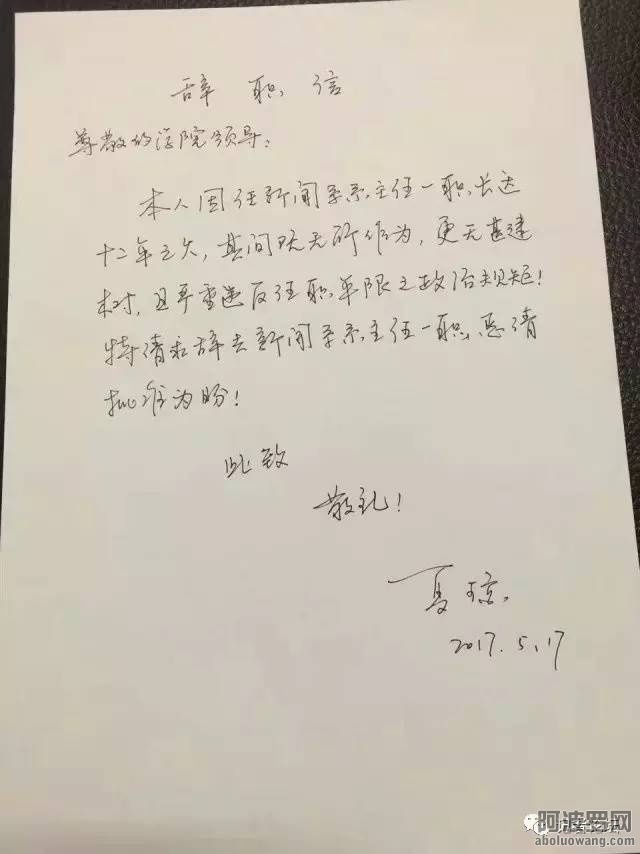 辞 职 信
尊敬的学院领导：
本人因任新闻系系主任一职长达
十二年之久，其间既无所作为，更无甚建
树，且严重违反任职年限之政治规矩！
特请求辞去新闻系系主任一职，恳请
批准为盼！
此致
敬礼！
夏琼
2017.5.17
阿波罗网
aboluowang.com